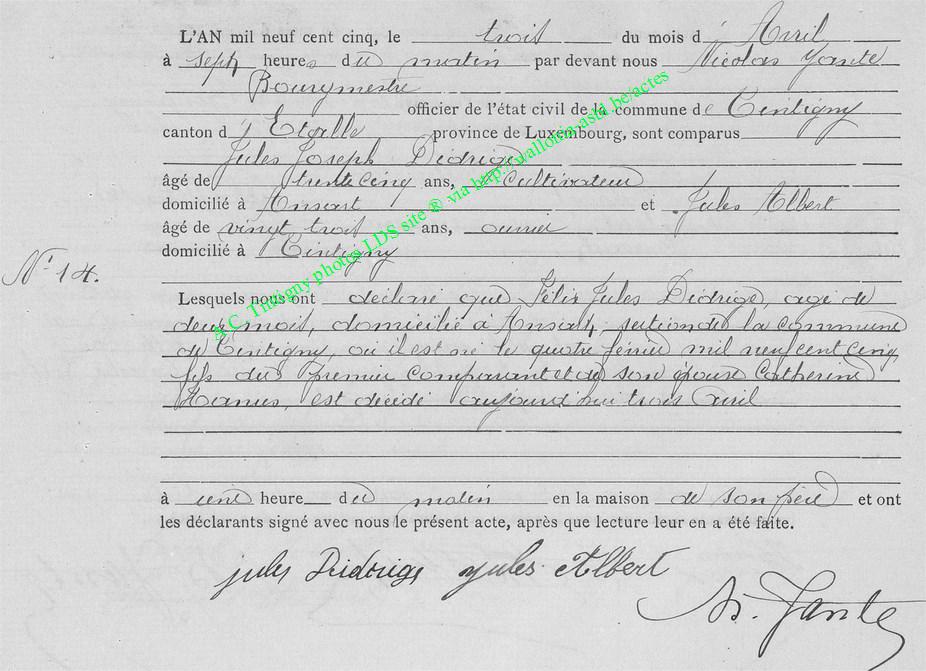 L'AN mil neuf cent cinq, le trois du mois d' Avril
à sept heures du matin par devant nous Nicolas Yante
Bourgmestre
officier de l'état civil de la commune de Tintigny
canton d' Etalle province de Luxembourg, sont comparus
Jules Joseph Didrige
âgé de trente cinq ans, cultivateur
domicilié à Ansart et Jules Albert
âgé de vingt trois ans, ouvrier
domicilié à Tintigny
N° 14.
Lesquels nous ont déclaré que Félix Jules Didrige, agé de
deux mois, domicilié à Ansart, section de la commune
de Tintigny, où il est né le quatre février mil neuf cent cinq
fils du premier comparant et de son épouse Catherine
Hanus, est décédé aujourd'hui trois avril
à une heure du matin en la maison de son père et ont
les déclarants signé avec nous le présent acte, après que lecture leur en a été faite.
jules Didrige jules Albert
N. Yante
A.C. Tintigny photos LDS site ® via http://wallonia-asbl.be/actes